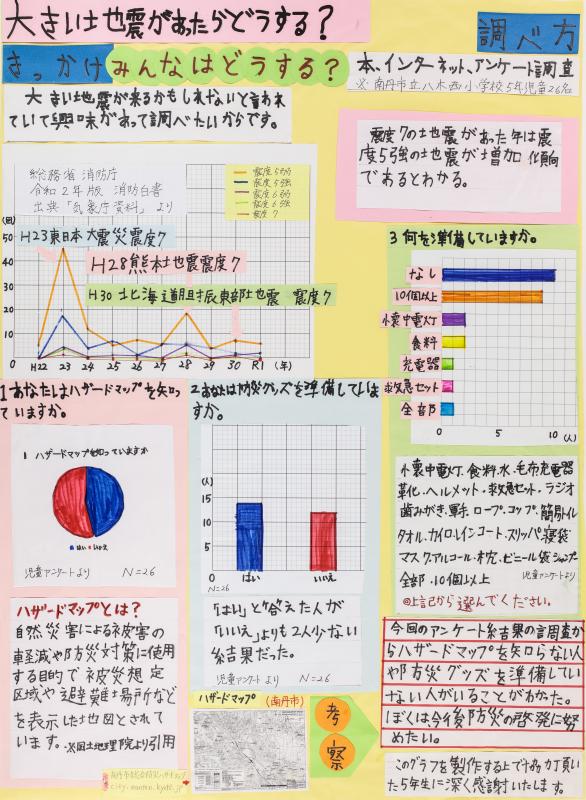 大きい地震があったらどうする？
調べ方
きっかけ
みんなはどうする？
本、インターネット、アンケート調査
※南丹市立八木西小学校5年児童26名
大きい地震が来るかもしれないと言われ
ていて興味があって調べたいからです。
震度7の地震があった年は震
度5強の地震が増加傾向
であるとわかる。
総務省 消防庁
令和2年版 消防白書
出典「気象庁資料」より
震度5弱
震度5強
震度6弱
震度6強
震度7
(回)
50
40
30
20
10
0
H23東日本大震災震度7
H28熊本地震震度7
H30北海道胆振東部地震 震度7
H22 23 24 25 26 27 28 29 30 R1 (年)
1あなたはハザードマップを知っ
ていますか。
1 ハザードマップを知っていますか
はい いいえ
児童アンケートより N=26
ハザードマップとは？
自然災害による被害の
軽減や防災対策に使用
する目的で被災想定
区域や避難場所などを
表示した地図とされて
います。※国土地理院より引用
2あなたは防災グッズを準備していま
すか。
(人)
15
10
5
はい いいえ
N=26
「はい」と答えた人が
「いいえ」よりも2人少ない
結果だった。
児童アンケートより N=26
ハザードマップ (南丹市)
考
察
3何を準備していますか。
なし
10個以上
懐中電灯
食料
充電器
救急セット
全部
0 5 10 (人)
懐中電灯、食料、水、毛布、充電器
靴、ヘルメット、救急セット、ラジオ
歯みがき、軍手、ロープ、コップ、簡易トイレ
タオル、カイロ、レインコート、スリッパ、寝袋
マスク、アルコール、枕、ビニール袋、シャンプー
全部・10個以上 児童アンケートより
◎上記から選んでください。
今回のアンケート結果の調査か
らハザードマップを知らない人
や防災グッズを準備してい
ない人がいることがわかった。
ぼくは今後防災の啓発に努
めたい。
このグラフを製作する上で協力頂い
た5年生に深く感謝いたします
南丹市総合防災ハザードマップ
city.nantan.kyoto.jp